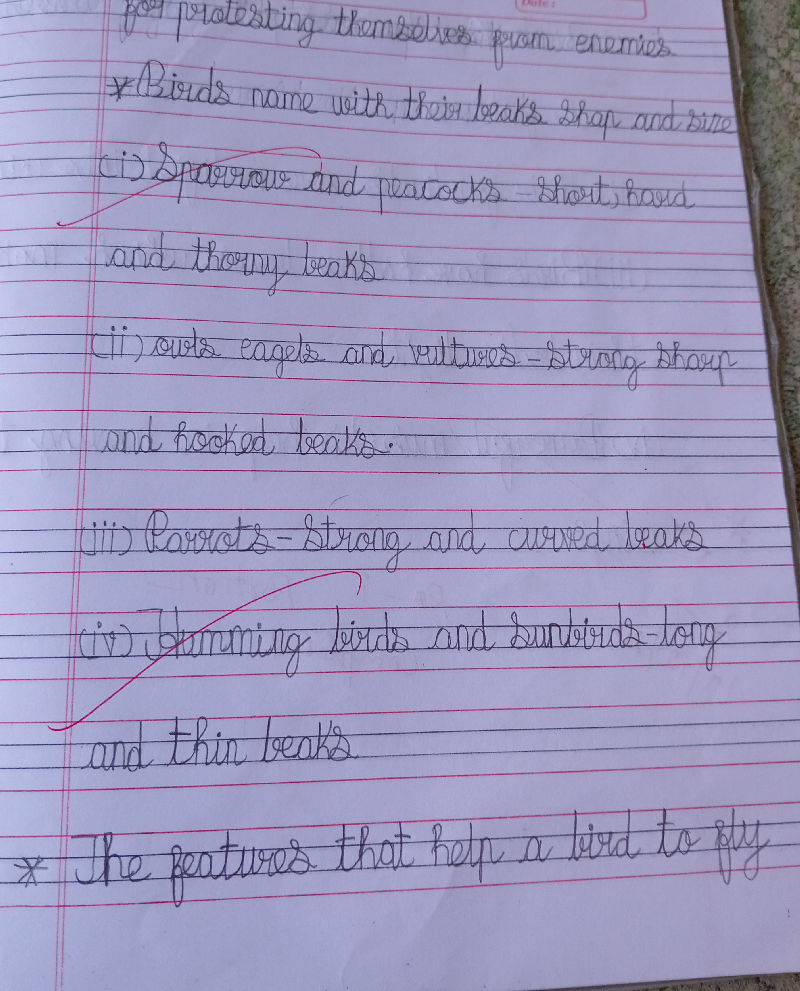 Date:
for protesting themselves from enemies
* Birds name with their beaks shap and size
(i) Sparrow and peacocks - short, hard
and thorny beaks
(ii) owls eagels and vultures - strong sharp
and hooked beaks.
(iii) Parrots - Strong and curved beaks
(iv) Humming birds and sunbirds - long
and thin beaks
* The features that help a bird to fly